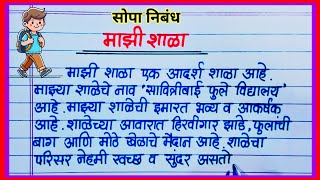 सोपा निबंध
माझी शाळा
माझी शाळा एक आदर्श शाळा आहे.
माझ्या शाळेचे नाव 'सावित्रीबाई फुले विद्यालय'
आहे. माझ्या शाळेची इमारत भव्य व आकर्षक
आहे. शाळेच्या आवारात हिरवीगार झाडे, फुलांची
बाग आणि मोठे खेळाचे मैदान आहे. शाळेचा
परिसर नेहमी स्वच्छ व सुंदर असतो.